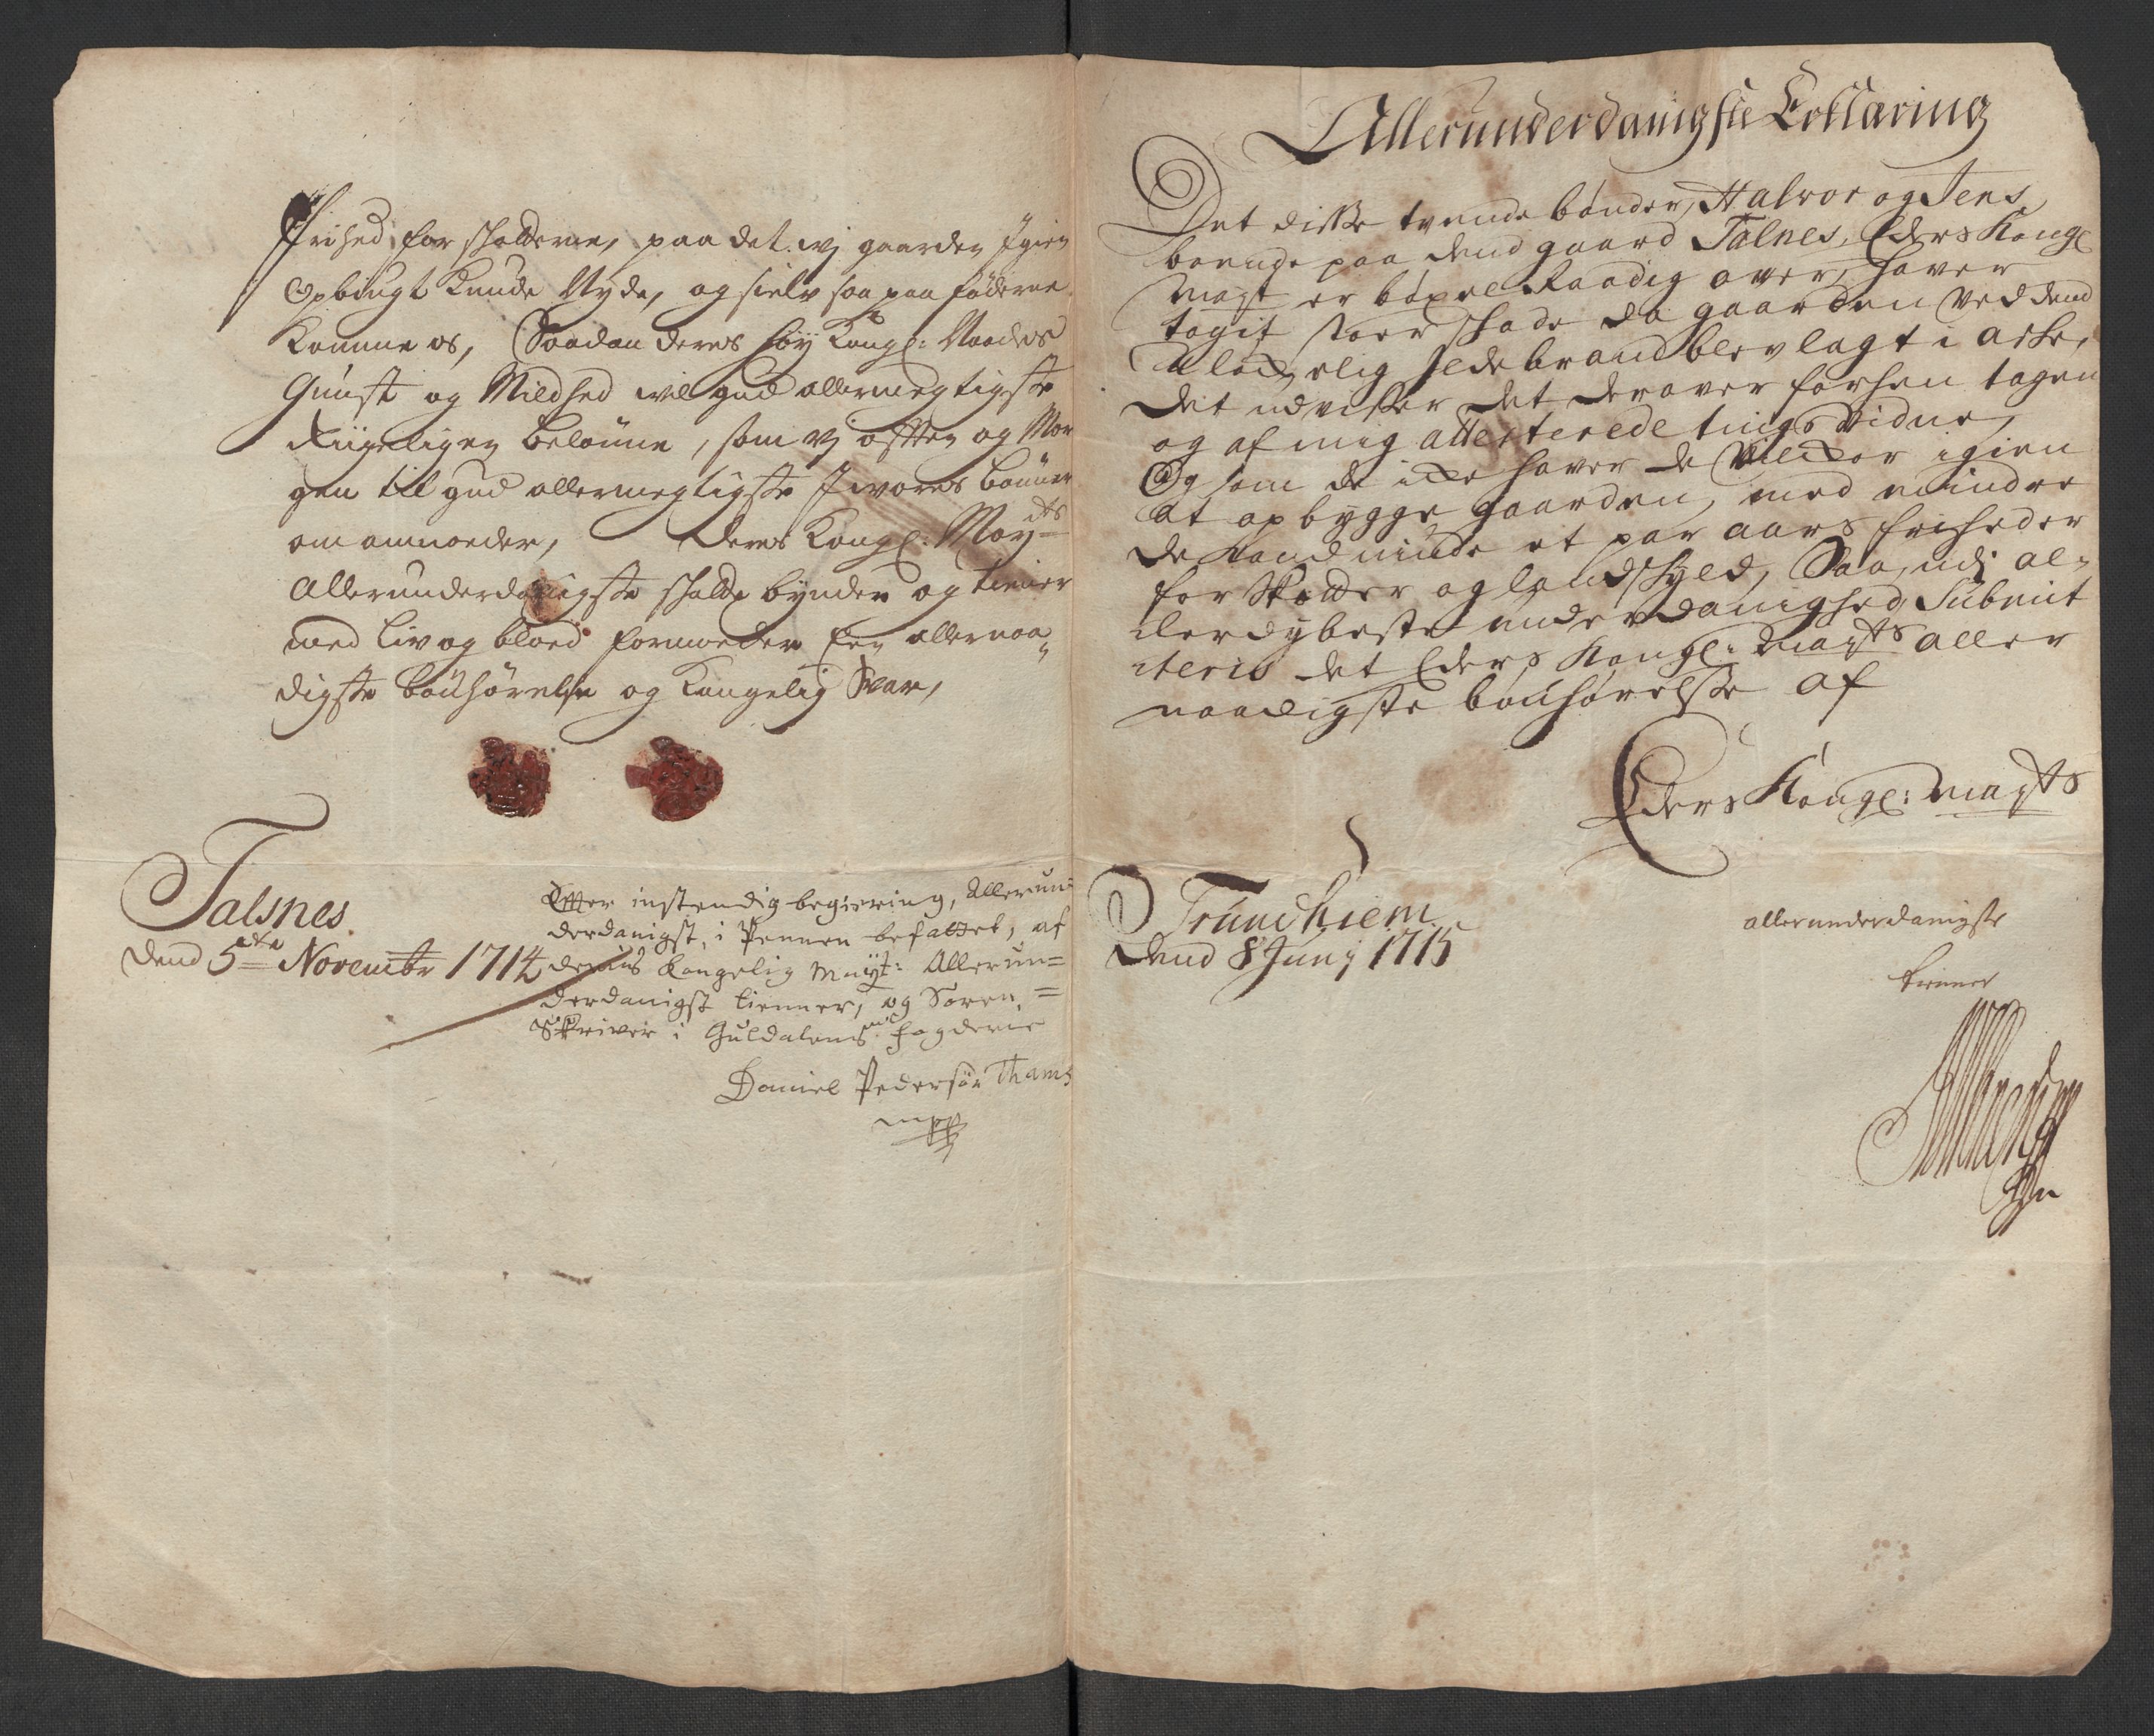 Frihed for skatterne, paa det wj gaarden Igien
Opbûugt Kunde Nyde, og sielv saa paa föderne
Komme os, Saadan deres höy Kongl: Naades
Gunst og Mildhed wil gud allermegtigste
Riigeligen belönne, som vj afften og Mor
gen til gud allermegtigste J wores bönner
om anmoeder, Deres Kongl: May:ts
Allerunderdanigste skatte bönder og tiener
med liv og bloed formoeder Een allernaa=
digste bönhörelse og Kongelig Svar,
Talsnes
dend 5te Novembr 1714
Effter instendig begiering, Allerun=
derdanigst, i Pennen befattet, af
deris Kongelig Mayt: Allerun=
derdanigst tienner, og Soren=
Skriver i Guldalens fogderie
Daniel Pedersön Thams
mpp
Allerunderdanigste Erklaring
Det disse tvende bönder, Halvor og Jens
boende paa dend gaard Talnes, Eders Kongl
Mayt er böxel Raadig over, haver
tagit stoer skade da gaarden ved dend
ulöckelig Ildebrand blev lagt i aske,
det udviser det derover forhen tagen
og af mig attesterede tings vidne,
Og som de icke haver de vilckor igien
at opbygge gaarden, med mindre
de Kand niude et par aars friheder
for Skatter og landskyld, Saa, udi al=
lerdybeste underdanighed, Submit
iteris det Eders Kongl: Mayts aller
naadigste bönhörelse af
Eders Kongl: Mayts
Trundhiem
dend 8 Junj 1715
allerunderdanigste
tiener